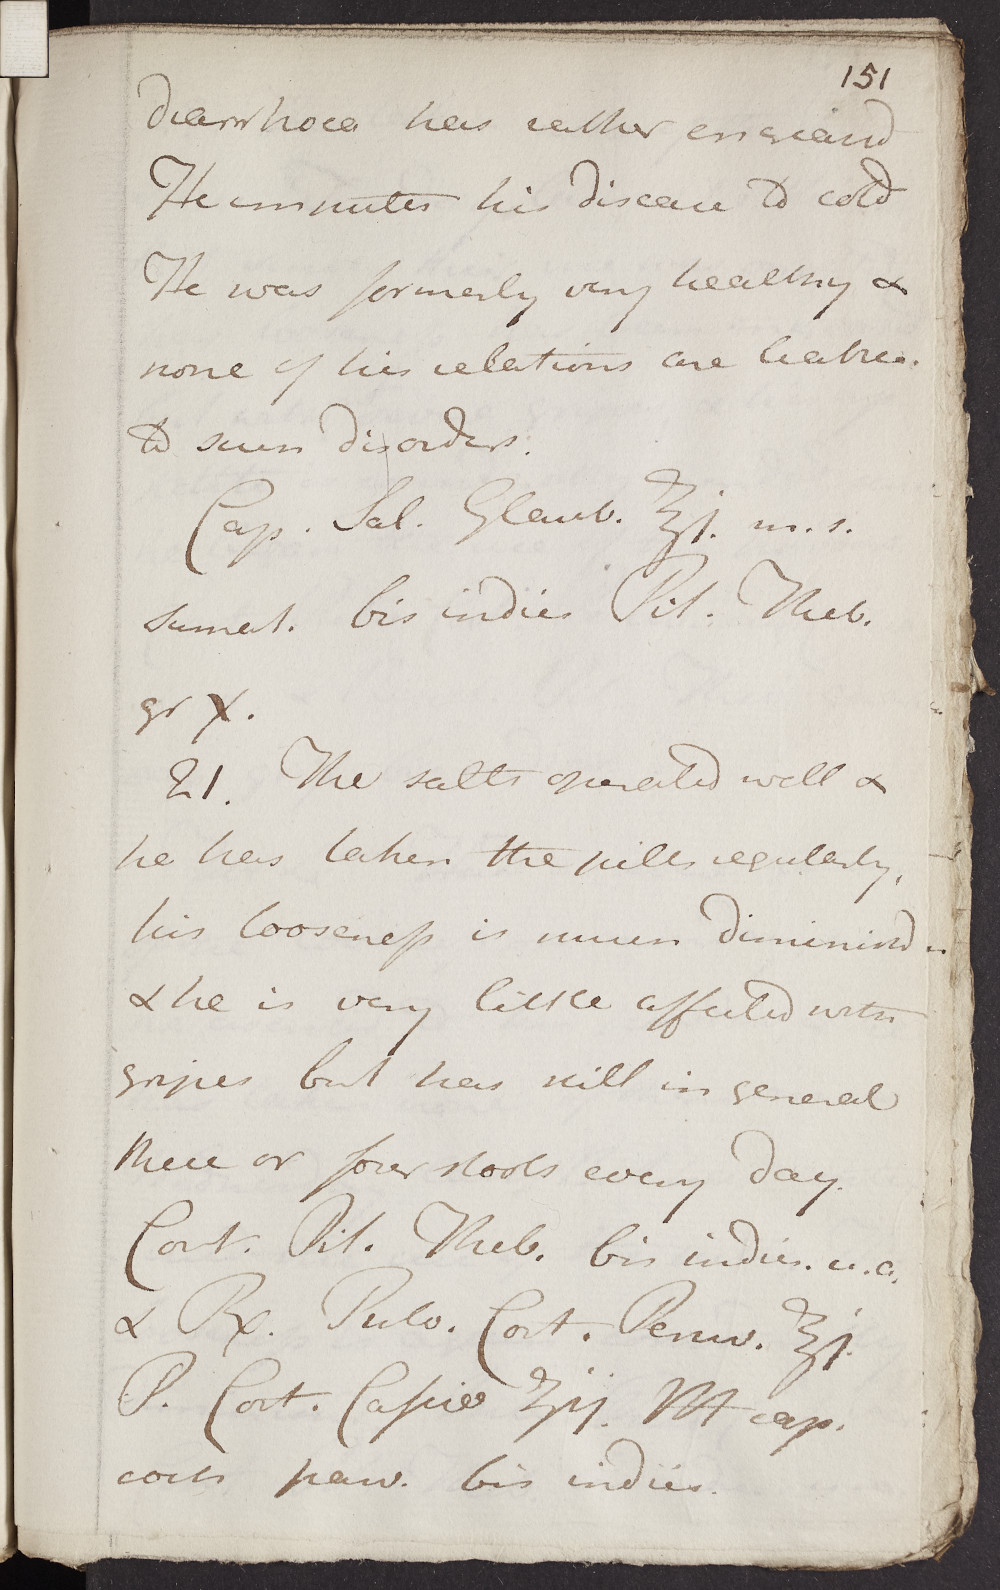 151
diarrhoea has rather encreasd
He imputes his disease to cold
He was formerly very healthy &
none of his relations are liable
to such disorders.
Cap. Sal. Glaub. ℥j. m.s.
sumat. bis indies Pil. Theb.
gr X.
21. The salts operated well &
he has taken the pills regularly,
his looseness is much diminishd
& he is very little affected with
gripes but has still in general
three or four stools every day.
Cont. Pil. Theb. bis indies. u.a.
& Rx. Pulv. Cort. Peruv. ℥j.
P. Cort. Cassiae ʒij. M cap.
coch parv. bis indies.